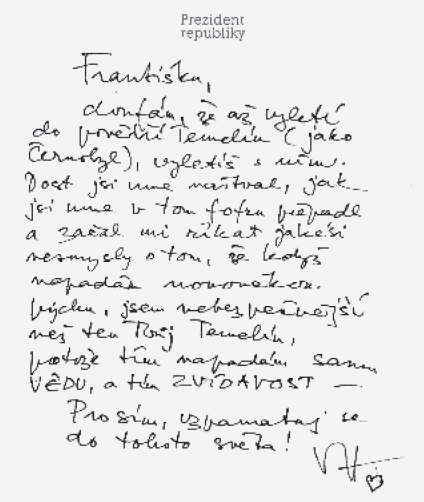 Prezident
republiky
Františku,
doufám, že až vyletí
do povětří Temelín (jako
Černobyl), vyletíš s ním.
Dost jsi mne naštval, jak
jsi mne v tom fofru přepadl
a začal mi říkat jakési
nesmysly o tom, že když
napadám novověkou
pýchu, jsem nebezpečnější
než ten Tvůj Temelín,
protože tím napadám samu
VĚDU, a tím ZVÍDAVOST —
Prosím, vzpamatuj se
do tohoto světa!
VH